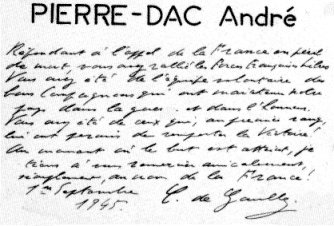 PIERRE-DAC André
Répondant à l'appel de la France en péril
de mort, vous avez rallié les Forces françaises libres
Vous avez été de l'équipe volontaire de
bons Compagnons qui ont maintenu notre
pays dans la guerre et dans l'honneur.
Vous avez été de ceux qui, au premier rang,
lui ont permis de remporter la Victoire!
Au moment où le but est atteint, je
tiens à vous remercier amicalement,
simplement, au nom de la France!
1er Septembre
1945. C. de Gaulle